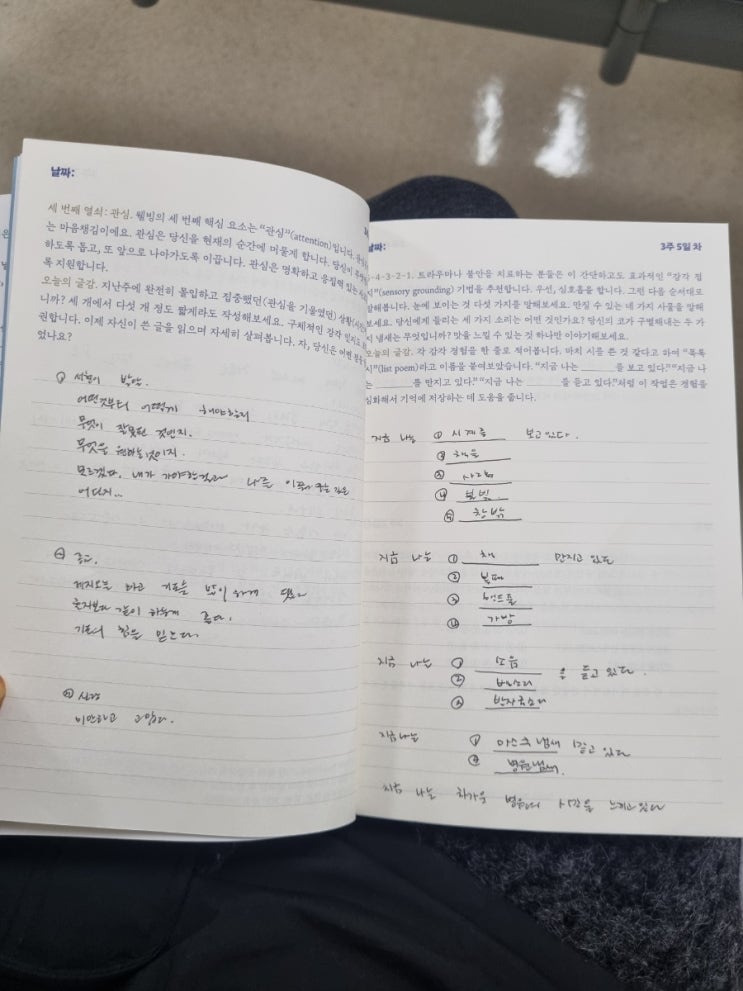 날짜:
세 번째 열쇠: 관심. 웰빙의 세 번째 핵심 요소는 “관심”(attention)입니다.
는 마음챙김이에요. 관심은 당신을 현재의 순간에 머물게 합니다. 당신이
하도록 돕고, 또 앞으로 나아가도록 이끕니다. 관심은 명확하고 응집력 있는
록 지원합니다.
오늘의 글감. 지난주에 완전히 몰입하고 집중했던(관심을 기울였던) 상황
니까? 세 개에서 다섯 개 정도 짧게라도 작성해보세요. 구체적인 감각
권합니다. 이제 자신이 쓴 글을 읽으며 자세히 살펴봅니다. 자, 당신은 어떤
었나요?
어떤것부터 어떻게 해야할지
무엇이 잘못된 것인지.
무엇을 원하는것이지.
모르겠다. 내가 가야할곳과 나를
어딘지...
힘을 믿는다.
미안하고 고맙다.
날짜:
3주 5일 차
5-4-3-2-1. 트라우마나 불안을 치료하는 분들은 이 간단하고도 효과적인 “감각 접
지”(sensory grounding) 기법을 추천합니다. 우선, 심호흡을 합니다. 그런 다음 순서대로
말해봅니다. 눈에 보이는 것 다섯 가지를 말해보세요. 만질 수 있는 네 가지 사물을 말해
보세요. 당신에게 들리는 세 가지 소리는 어떤 것인가요? 당신의 코가 구별해내는 두 가
지 냄새는 무엇입니까? 맛을 느낄 수 있는 것 하나만 이야기해보세요.
오늘의 글감. 각 감각 경험을 한 줄로 적어봅니다. 마치 시를 쓴 것 같다고 하여 “목록
시”(list poem)라고 이름을 붙여보았습니다. “지금 나는 ______를 보고 있다.” “지금 나
는 ______를 만지고 있다.” “지금 나는 ______를 듣고 있다.”처럼 이 작업은 경험을
심화해서 기억에 저장하는 데 도움을 줍니다.
지금 나는 ① 시계를 보고있다.
② 책을
③ 사람
④ 불빛
⑤ 창밖
지금 나는 ① 책 만지고 있다
② 볼펜
③ 핸드폰
④ 가방
지금 나는 ① 소음 을 듣고 있다.
②
③ 발자국소리
지금 나는 ① 마스크 냄새 맡고 있다
② 병원냄새.
지금 나는 차가운 병원의 시간을 느끼고있다